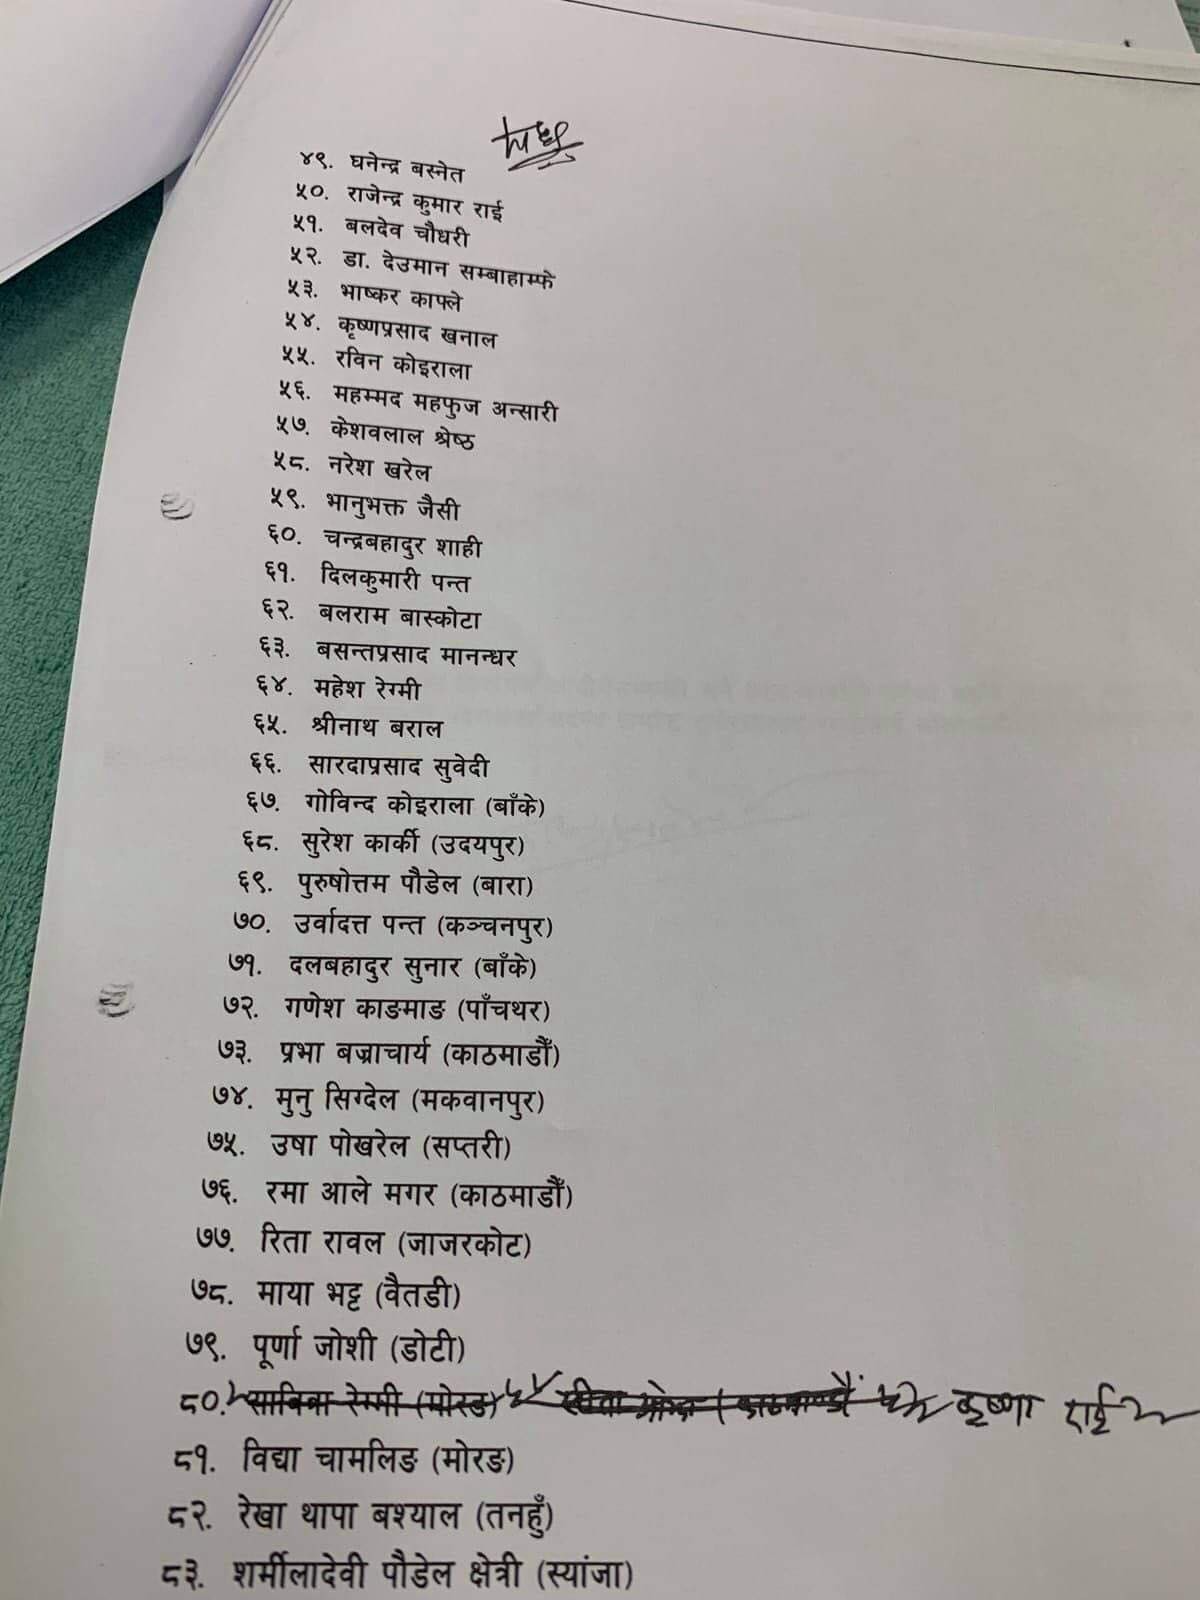 ४९. घनेन्द्र बस्नेत
५०. राजेन्द्र कुमार राई
५१. बलदेव चौधरी
५२. डा. देउमान सम्बाहाम्फे
५३. भाष्कर काफ्ले
५४. कृष्णप्रसाद खनाल
५५. रविन कोइराला
५६. महम्मद महफुज अन्सारी
५७. केशवलाल श्रेष्ठ
५८. नरेश खरेल
५९. भानुभक्त जैसी
६०. चन्द्रबहादुर शाही
६१. दिलकुमारी पन्त
६२. बलराम बास्कोटा
६३. बसन्तप्रसाद मानन्धर
६४. महेश रेग्मी
६५. श्रीनाथ बराल
६६. सारदाप्रसाद सुवेदी
६७. गोविन्द कोइराला (बाँके)
६८. सुरेश कार्की (उदयपुर)
६९. पुरुषोत्तम पौडेल (बारा)
७०. उर्वादत्त पन्त (कञ्चनपुर)
७१. दलबहादुर सुनार (बाँके)
७२. गणेश काङमाङ (पाँचथर)
७३. प्रभा बज्राचार्य (काठमाडौँ)
७४. मुनु सिग्देल (मकवानपुर)
७५. उषा पोखरेल (सप्तरी)
७६. रमा आले मगर (काठमाडौँ)
७७. रिता रावल (जाजरकोट)
७८. माया भट्ट (वैतडी)
७९. पूर्णा जोशी (डोटी)
८०. रेग्मी (मोरङ) कृष्णा राई
८१. विद्या चामलिङ (मोरङ)
८२. रेखा थापा बश्याल (तनहुँ)
८३. शर्मीलादेवी पौडेल क्षेत्री (स्यांजा)